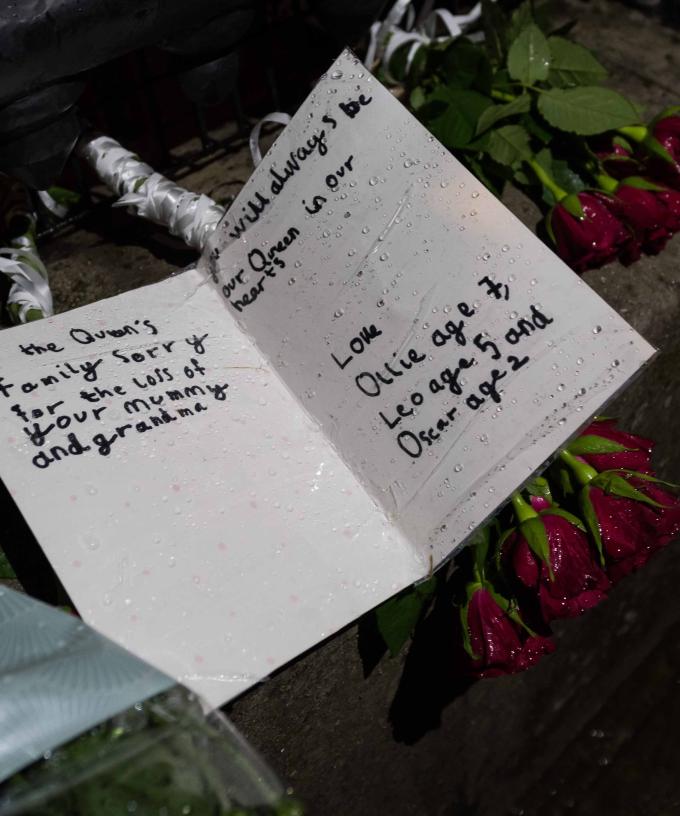 the Queen's
family Sorry
for the loss of
your mummy
and grandma
will always be
our Queen in our
hearts
Love
Ollie age 7,
Leo age 5 and
Oscar age 2